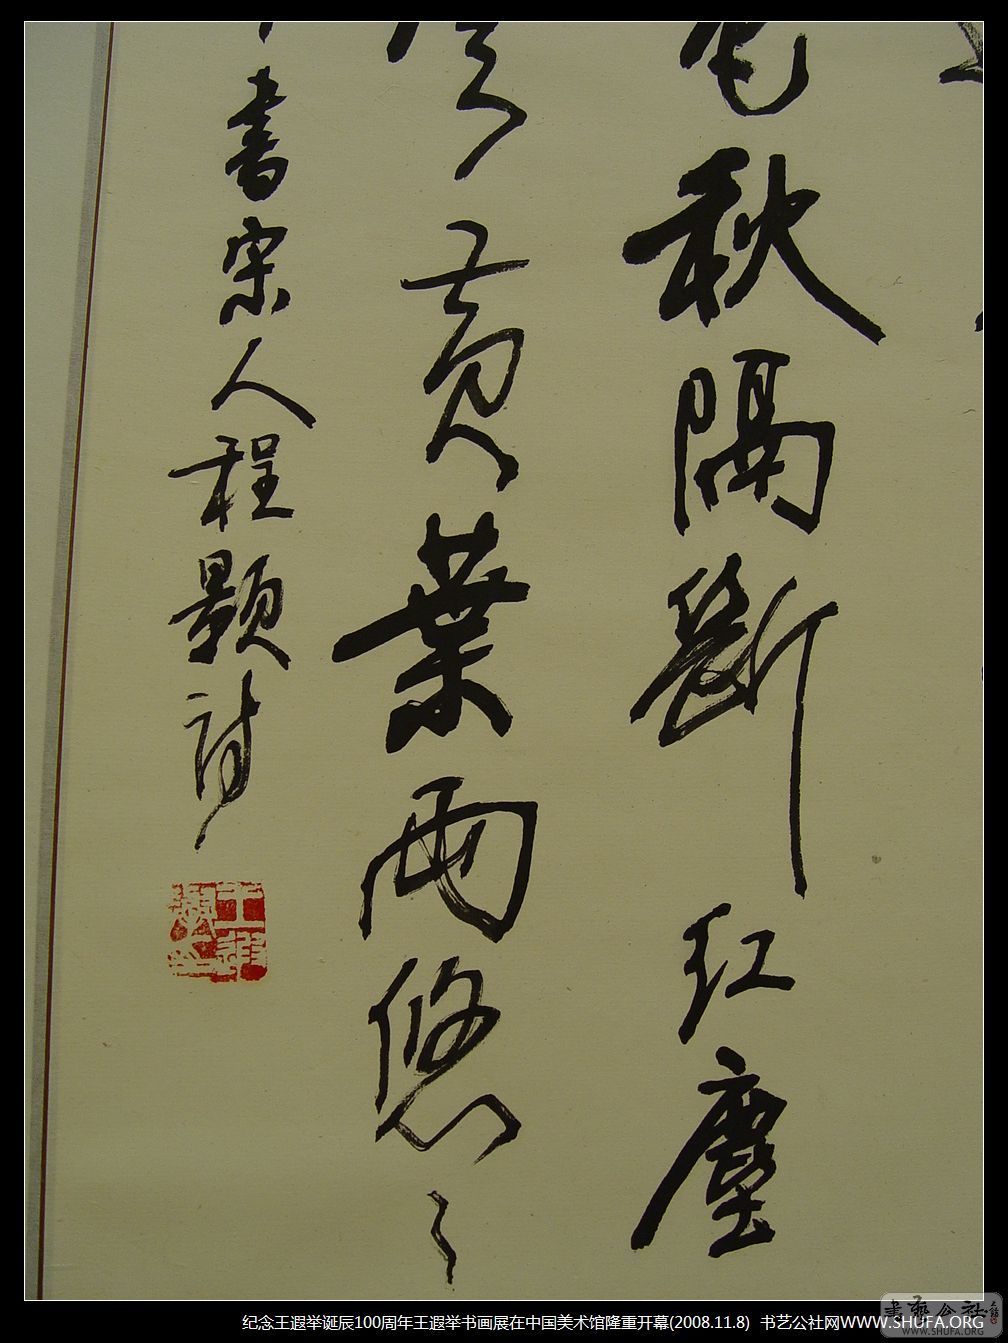 色秋隔斷紅塵
雲黃葉兩悠〻
書宋人程顥詩
纪念王遐举诞辰100周年王遐举书画展在中国美术馆隆重开幕(2008.11.8) 书艺公社网WWW.SHUFA.ORG
書藝公社
www.SHUFA.ORG